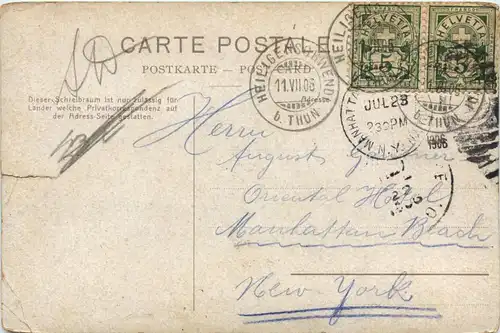 CARTE POSTALE
POSTKARTE — POST CARD
Dieser Schreibraum ist nur zulässig für
Länder welche Privatkorrespondenz auf
der Adress-Seite gestatten.
Adresse
HELVETIA HELVETIA
5 5
HEILIGENSCHWENDI
11.VII.06
b. THUN
JUL 23
2 30 PM
1906
MANHATTAN
N.Y.
Herrn
August
Oriental Hotel
Manhattan Beach
New-York